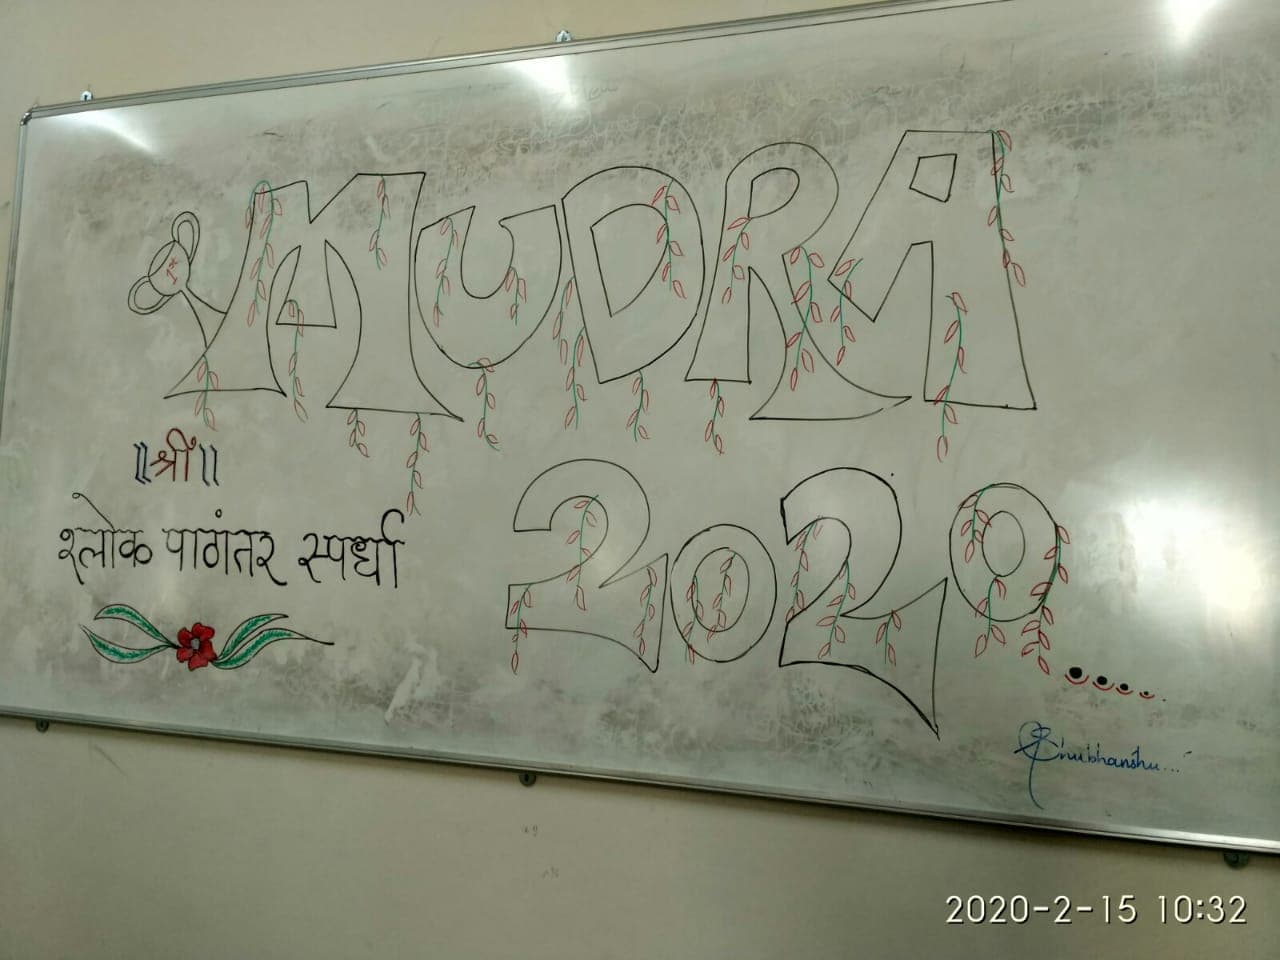 MUDRA
2020....
॥श्रीं॥
श्लोक पागंतर स्पर्धा
Shubhanshu...
2020-2-15 10:32